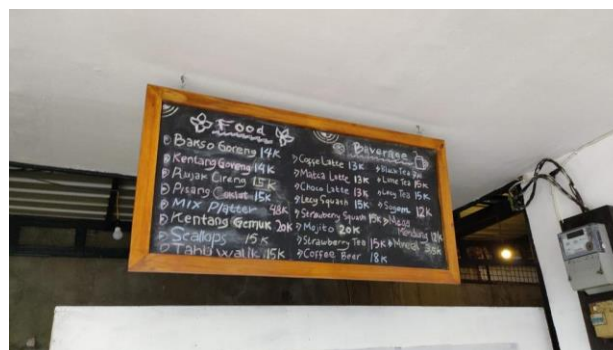 Food
Bakso Goreng 14K
Kentang Goreng 14K
Rujak Cireng 15K
Pisang Coklat 15K
Mix Platter 48K
Kentang Gemuk 20K
Scallops 15K
Tahu Walik 15K
Baverage
Coffe Latte 13K
Matca Latte 13K
Choco Latte 13K
Lecy Squash 15K
Strawbery Squash 15K
Mojito 20K
Strawberry Tea 15K
Coffee Beer 18K
Black Tea
Lime Tea 15K
Lecy Tea 15K
12K
12K
Mineral